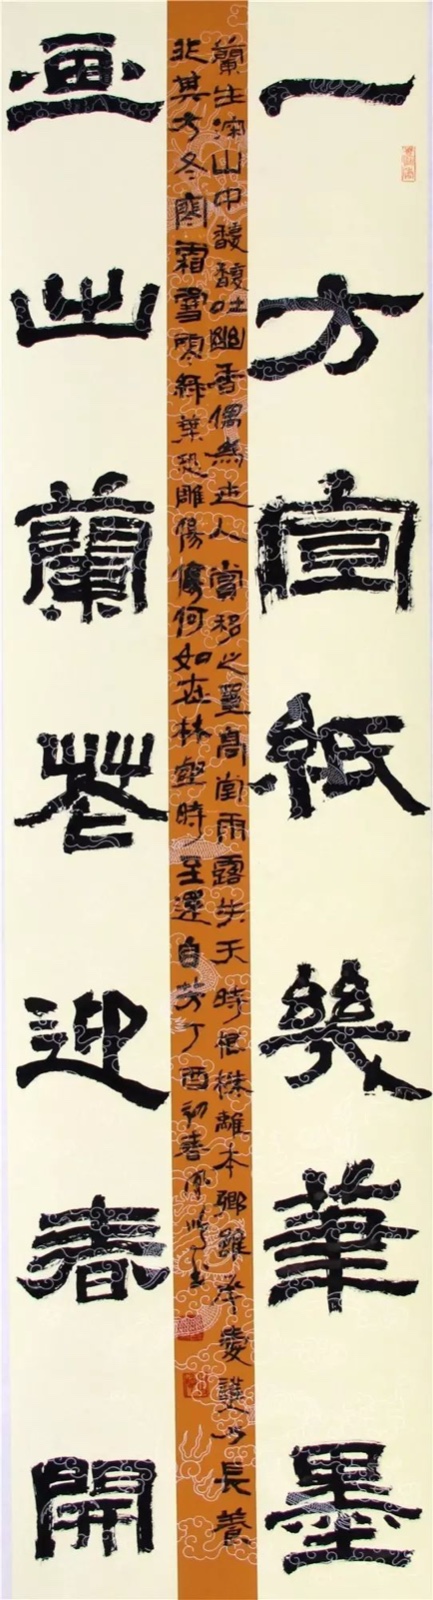 一方宣紙幾筆墨
蘭生深山中馥馥吐幽香偶為世人賞移之置高堂雨露失天時根株離本鄉雖承愛護力長養
非其方冬寒霜雪零綠葉恐雕傷何如在林壑時至還自芳丁酉初春
画出蘭花迎春開